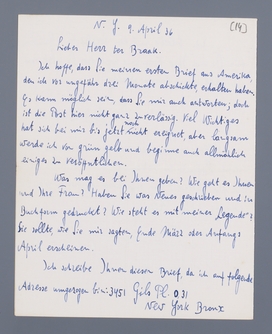 N. Y. 9. April 36 [14]
Lieber Herr ter Braak.
Ich hoffe, dass Sie meinen ersten Brief aus Amerika
den ich vor ungefähr drei Monate abschickte, erhalten haben.
Es kann möglich sein, dass Sie mir auch antworteten; doch
ist die Post hier nicht ganz zuverlässig. Viel Wichtiges
hat sich bei mir bis jetzt noch nicht ereignet aber langsam
werde ich von grün gelb und beginne auch allmählich
einiges zu veröffentlichen.
Was mag es bei Ihnen geben? Wie geht es Ihnen
und Ihre Frau? Haben Sie was Neues geschrieben und in
Buchform gedruckt? Wie steht es mit meiner "Legende"?
Sie sollte, wie Sie mir sagten, Ende März oder Anfangs
April erscheinen.
Ich schreibe Ihnen diesen Brief da ich auf folgende
Adresse umgezogen bin: 3451 Gils Pl. D 31
New York Bronx